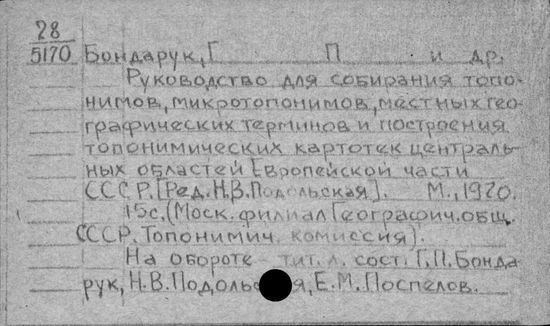 28
5170 Бондарук, Г П и др.
Руководство для собирания топо-
нимов, микротопонимов, местных гео-
графических терминов и построения
топонимических картотек централь-
ных областей Европейской части
СССР. [Ред. Н.В.Подольская]. М., 1970.
15с. (Моск. филиал Географич. общ.
СССР. Топонимич. комиссия).
На обороте тит. л. сост. Г.П.Бонда
рук, Н.В.Подольская, Е.М.Поспелов.